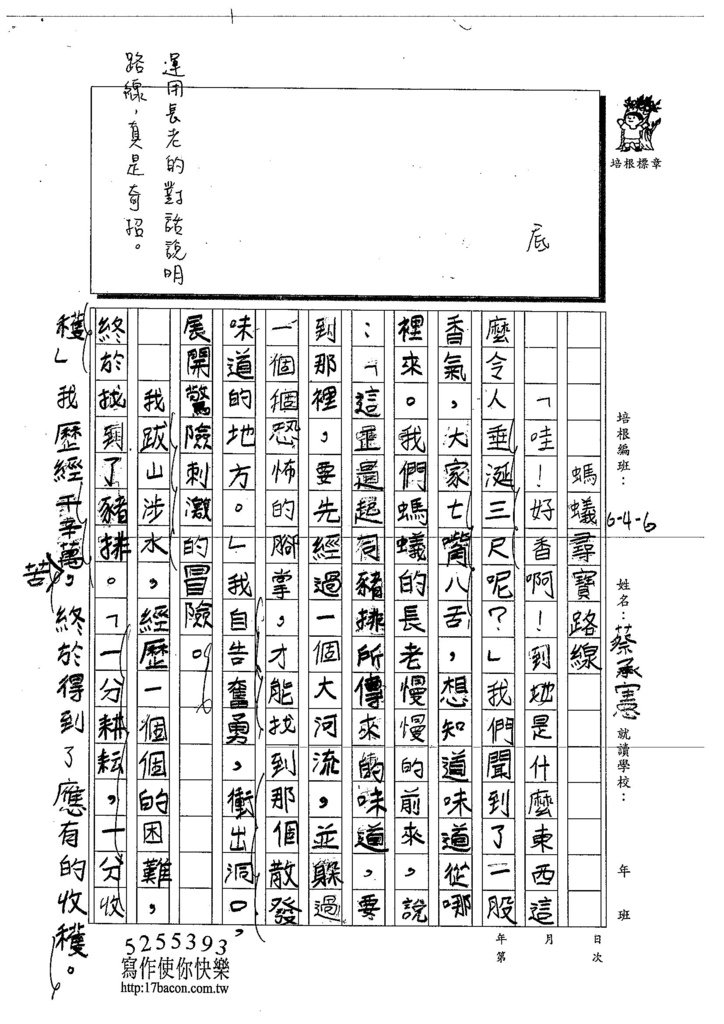 培根標章
運用長老的對話說明
路線，真是奇招。
底
培根編班：6-4-6
姓名：蔡承憲
就讀學校：
年 班
年 月 日
第 次
螞蟻尋寶路線
「哇！好香啊！到地是什麼東西這
麼令人垂涎三尺呢？」我們聞到了一股
香氣，大家七嘴八舌，想知道味道從哪
裡來。我們螞蟻的長老慢慢的前來，說
：「這是起司豬排所傳來的味道，要
到那裡，要先經過一個大河流，並躲過
一個個恐怖的腳掌，才能找到那個散發
味道的地方。」我自告奮勇，衝出洞口，
展開驚險刺激的冒險。
我跋山涉水，經歷一個個的困難，
終於找到了豬排。「一分耕耘，一分收
穫」我歷經千辛萬苦，終於得到了應有的收穫。
5255393
寫作使你快樂
http:17bacon.com.tw